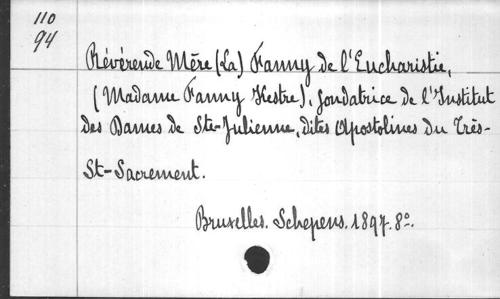 110
94
Révérende Mère (La) Fanny de l'Eucharistie,
(Madame Fanny Kestre), fondatrice de l'Institut
des Dames de Ste-Julienne, dites Apostolines du Très-
St-Sacrement.
Bruxelles. Schepens. 1897. 8°.